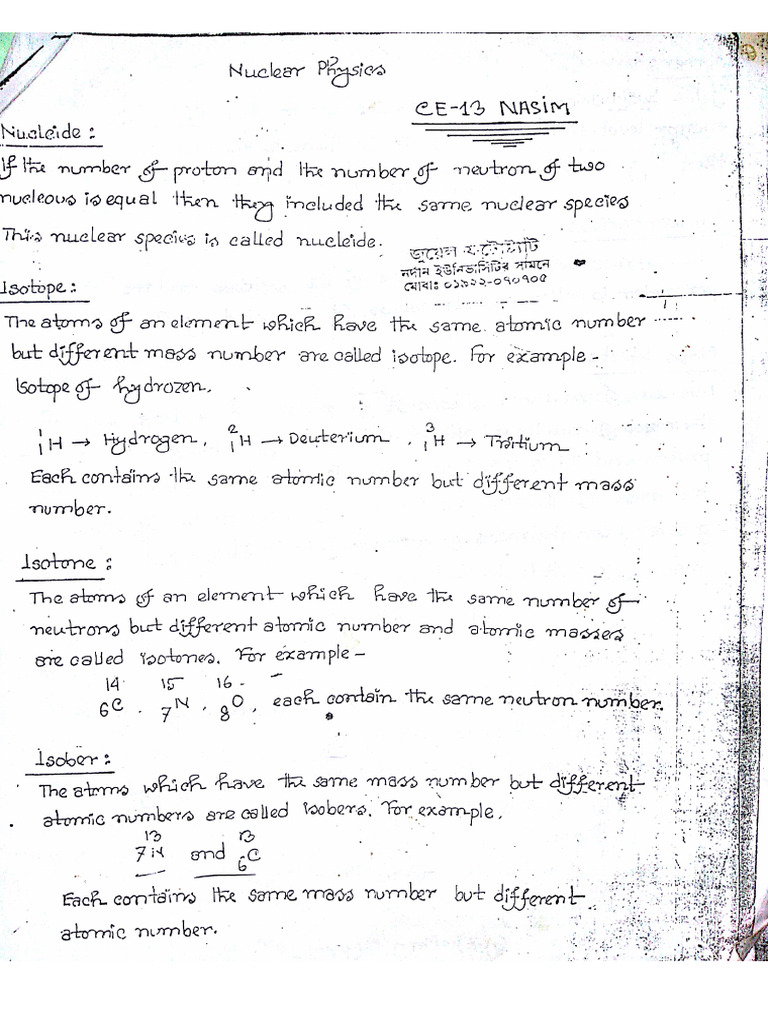 Nuclear Physics
CE-13 NASIM
Nucleide:
If the number of proton and the number of neutron of two
nucleous is equal then they included the same nuclear species
This nuclear species is called nucleide.
জুয়েল ফটোস্ট্যাট
নর্দান ইউনিভার্সিটির সামনে
মোবাঃ ০১৯২২-০৭০৭০৫
Isotope:
The atoms of an element which have the same atomic number
but different mass number are called isotope. For example -
Isotope of hydrozen,
¹₁H → Hydrogen, ²₁H → Deuterium, ³₁H → Traitium
Each contains the same atomic number but different mass
number.
Isotone:
The atoms of an element which have the same number of
neutrons but different atomic number and atomic masses
are called isotones. For example -
¹⁴₆C, ¹⁵₇N, ¹⁶₈O, each contain the same neutron number.
Isober:
The atoms which have the same mass number but different
atomic numbers are called isobers. For example,
¹³₇N and ¹³₆C
Each contains the same mass number but different
atomic number.